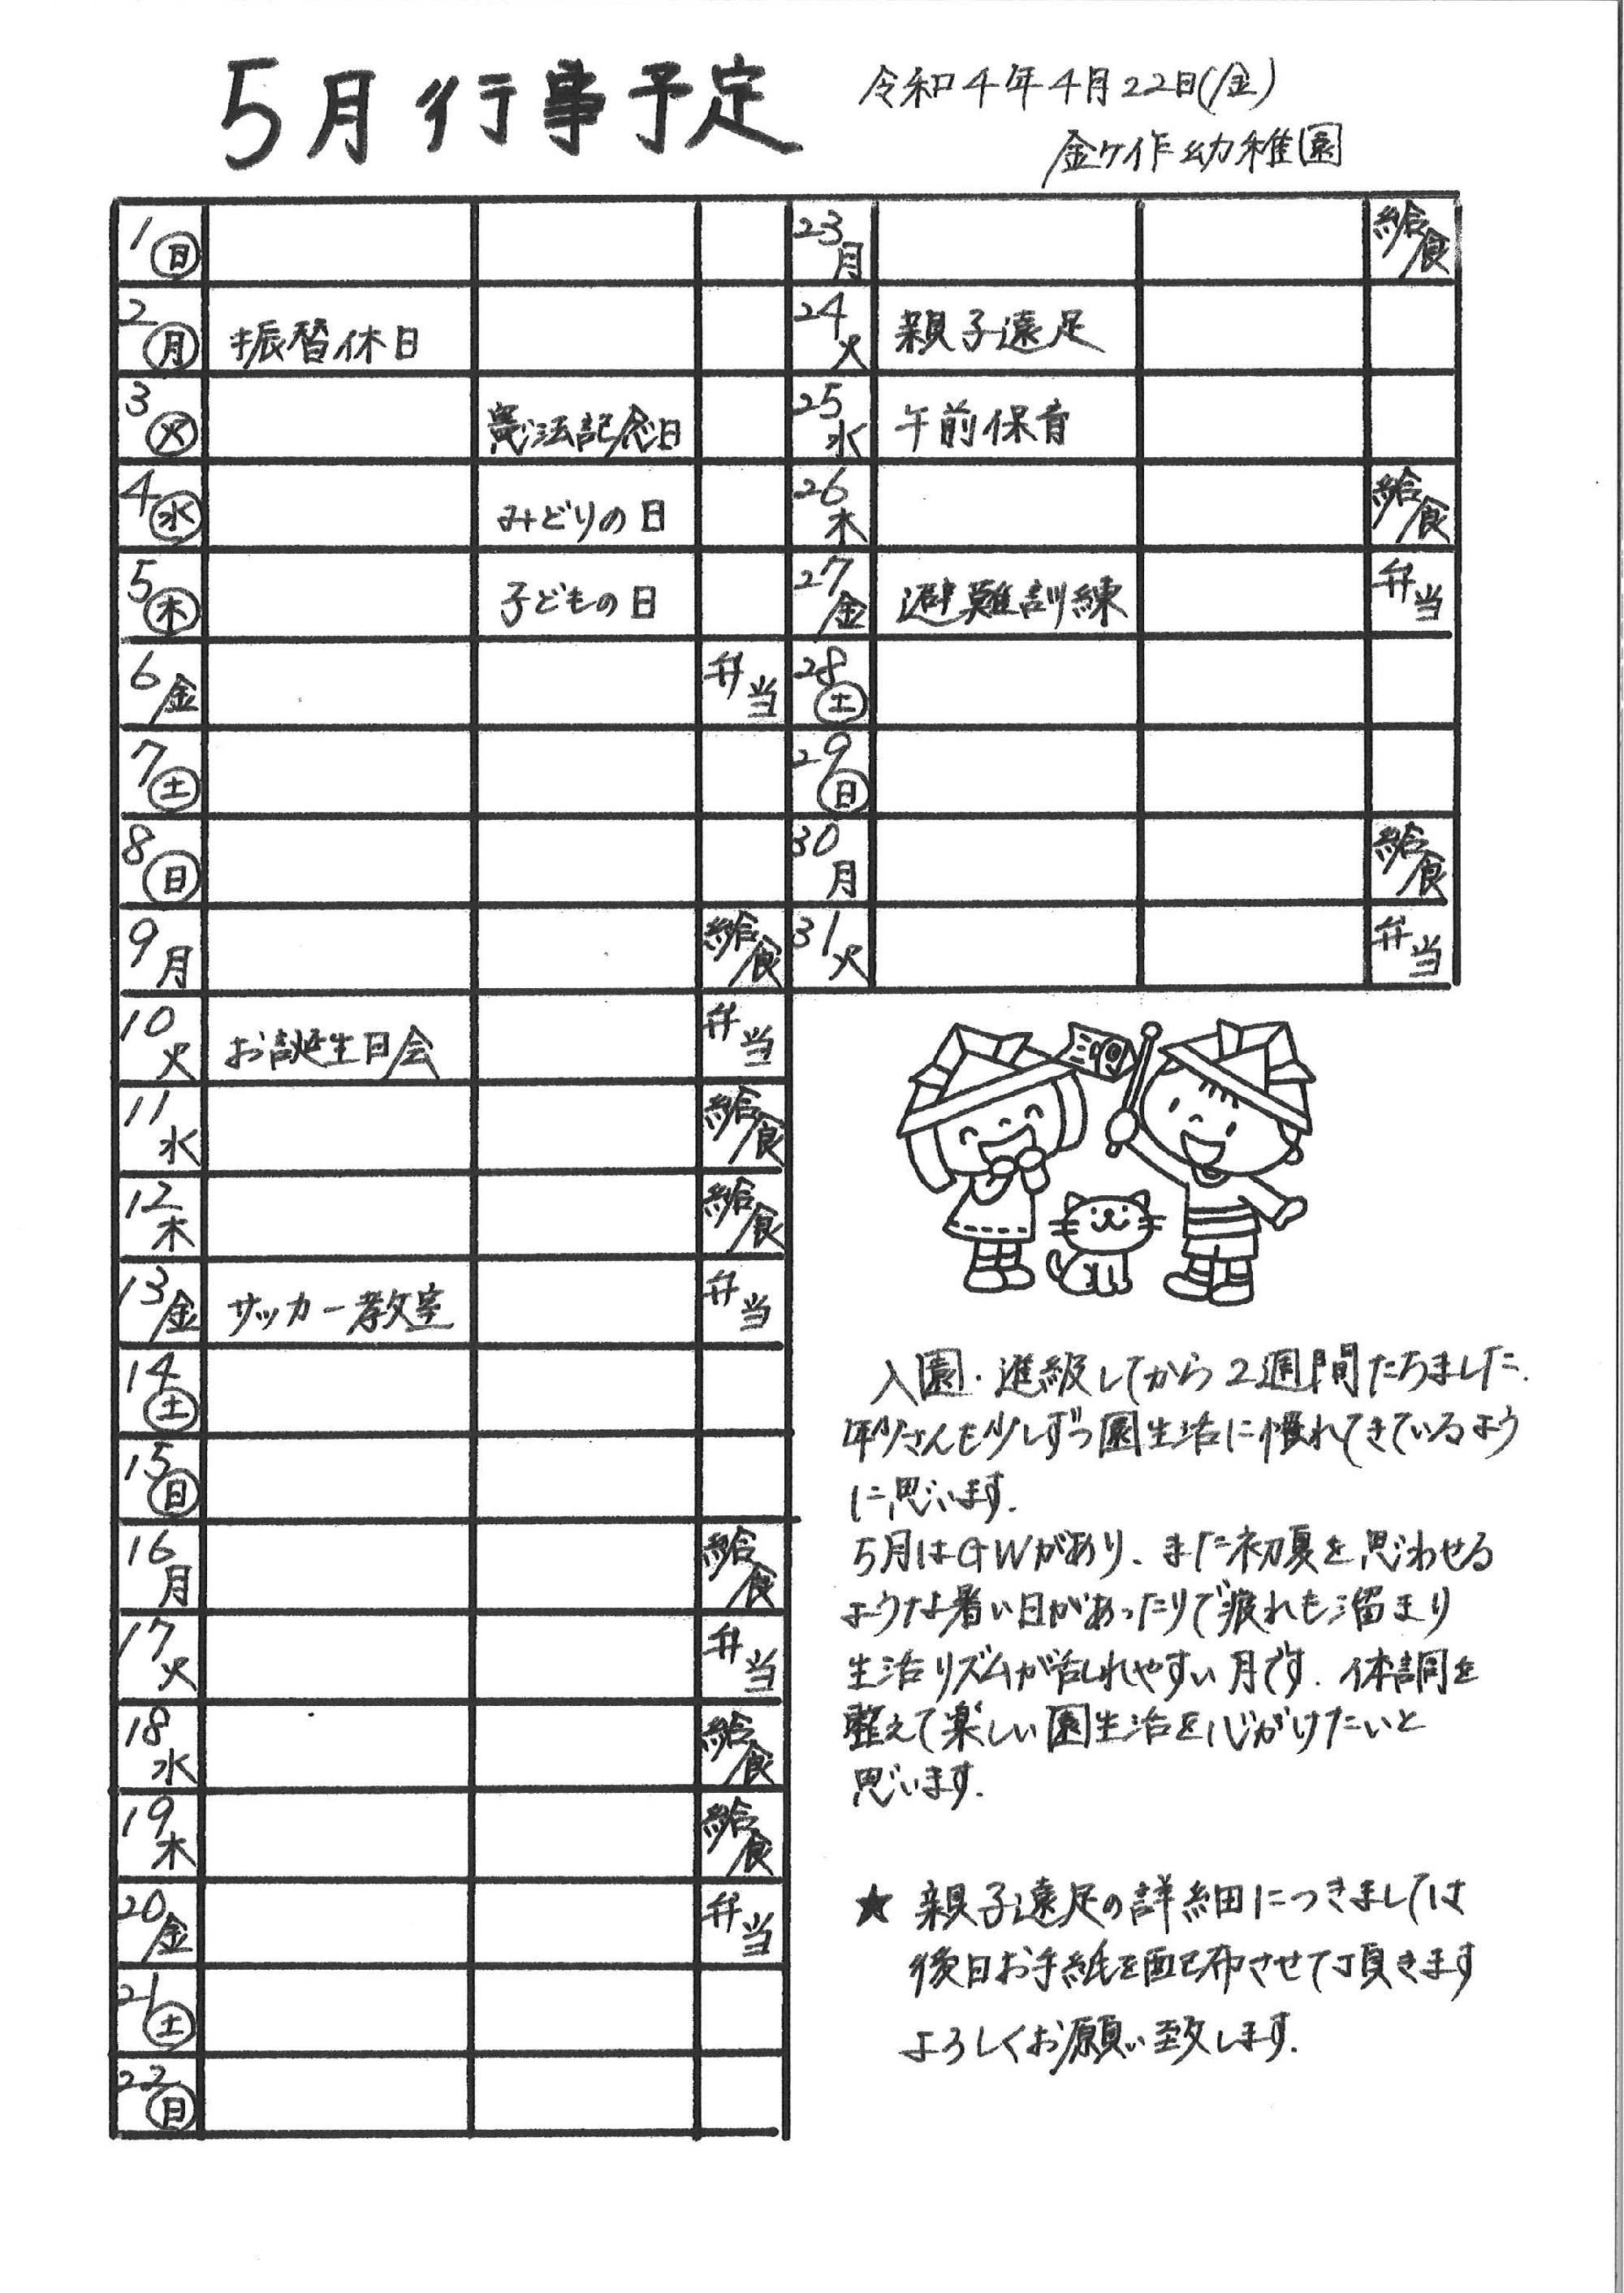 5月行事予定
令和4年4月22日(金)
金ケ作幼稚園
1 日
2 月 振替休日
3 火 憲法記念日
4 水 みどりの日
5 木 子どもの日
6 金 弁当
7 土
8 日
9 月 給食
10 火 お誕生日会 弁当
11 水 給食
12 木 給食
13 金 サッカー教室 弁当
14 土
15 日
16 月 給食
17 火 弁当
18 水 給食
19 木 給食
20 金 弁当
21 土
22 日
23 月 給食
24 火 親子遠足
25 水 午前保育
26 木 給食
27 金 避難訓練 弁当
28 土
29 日
30 月 給食
31 火 弁当
入園・進級してから2週間たちました.
年少さんも少しずつ園生活に慣れてきているよう
に思います.
5月はGWがあり、また初夏を思わせる
ような暑い日があったりで疲れも溜まり
生活リズムが乱れやすい月です. 体調を
整えて楽しい園生活を心がけたいと
思います.
★ 親子遠足の詳細につきましては
後日お手紙を配布させて頂きます
よろしくお願い致します.